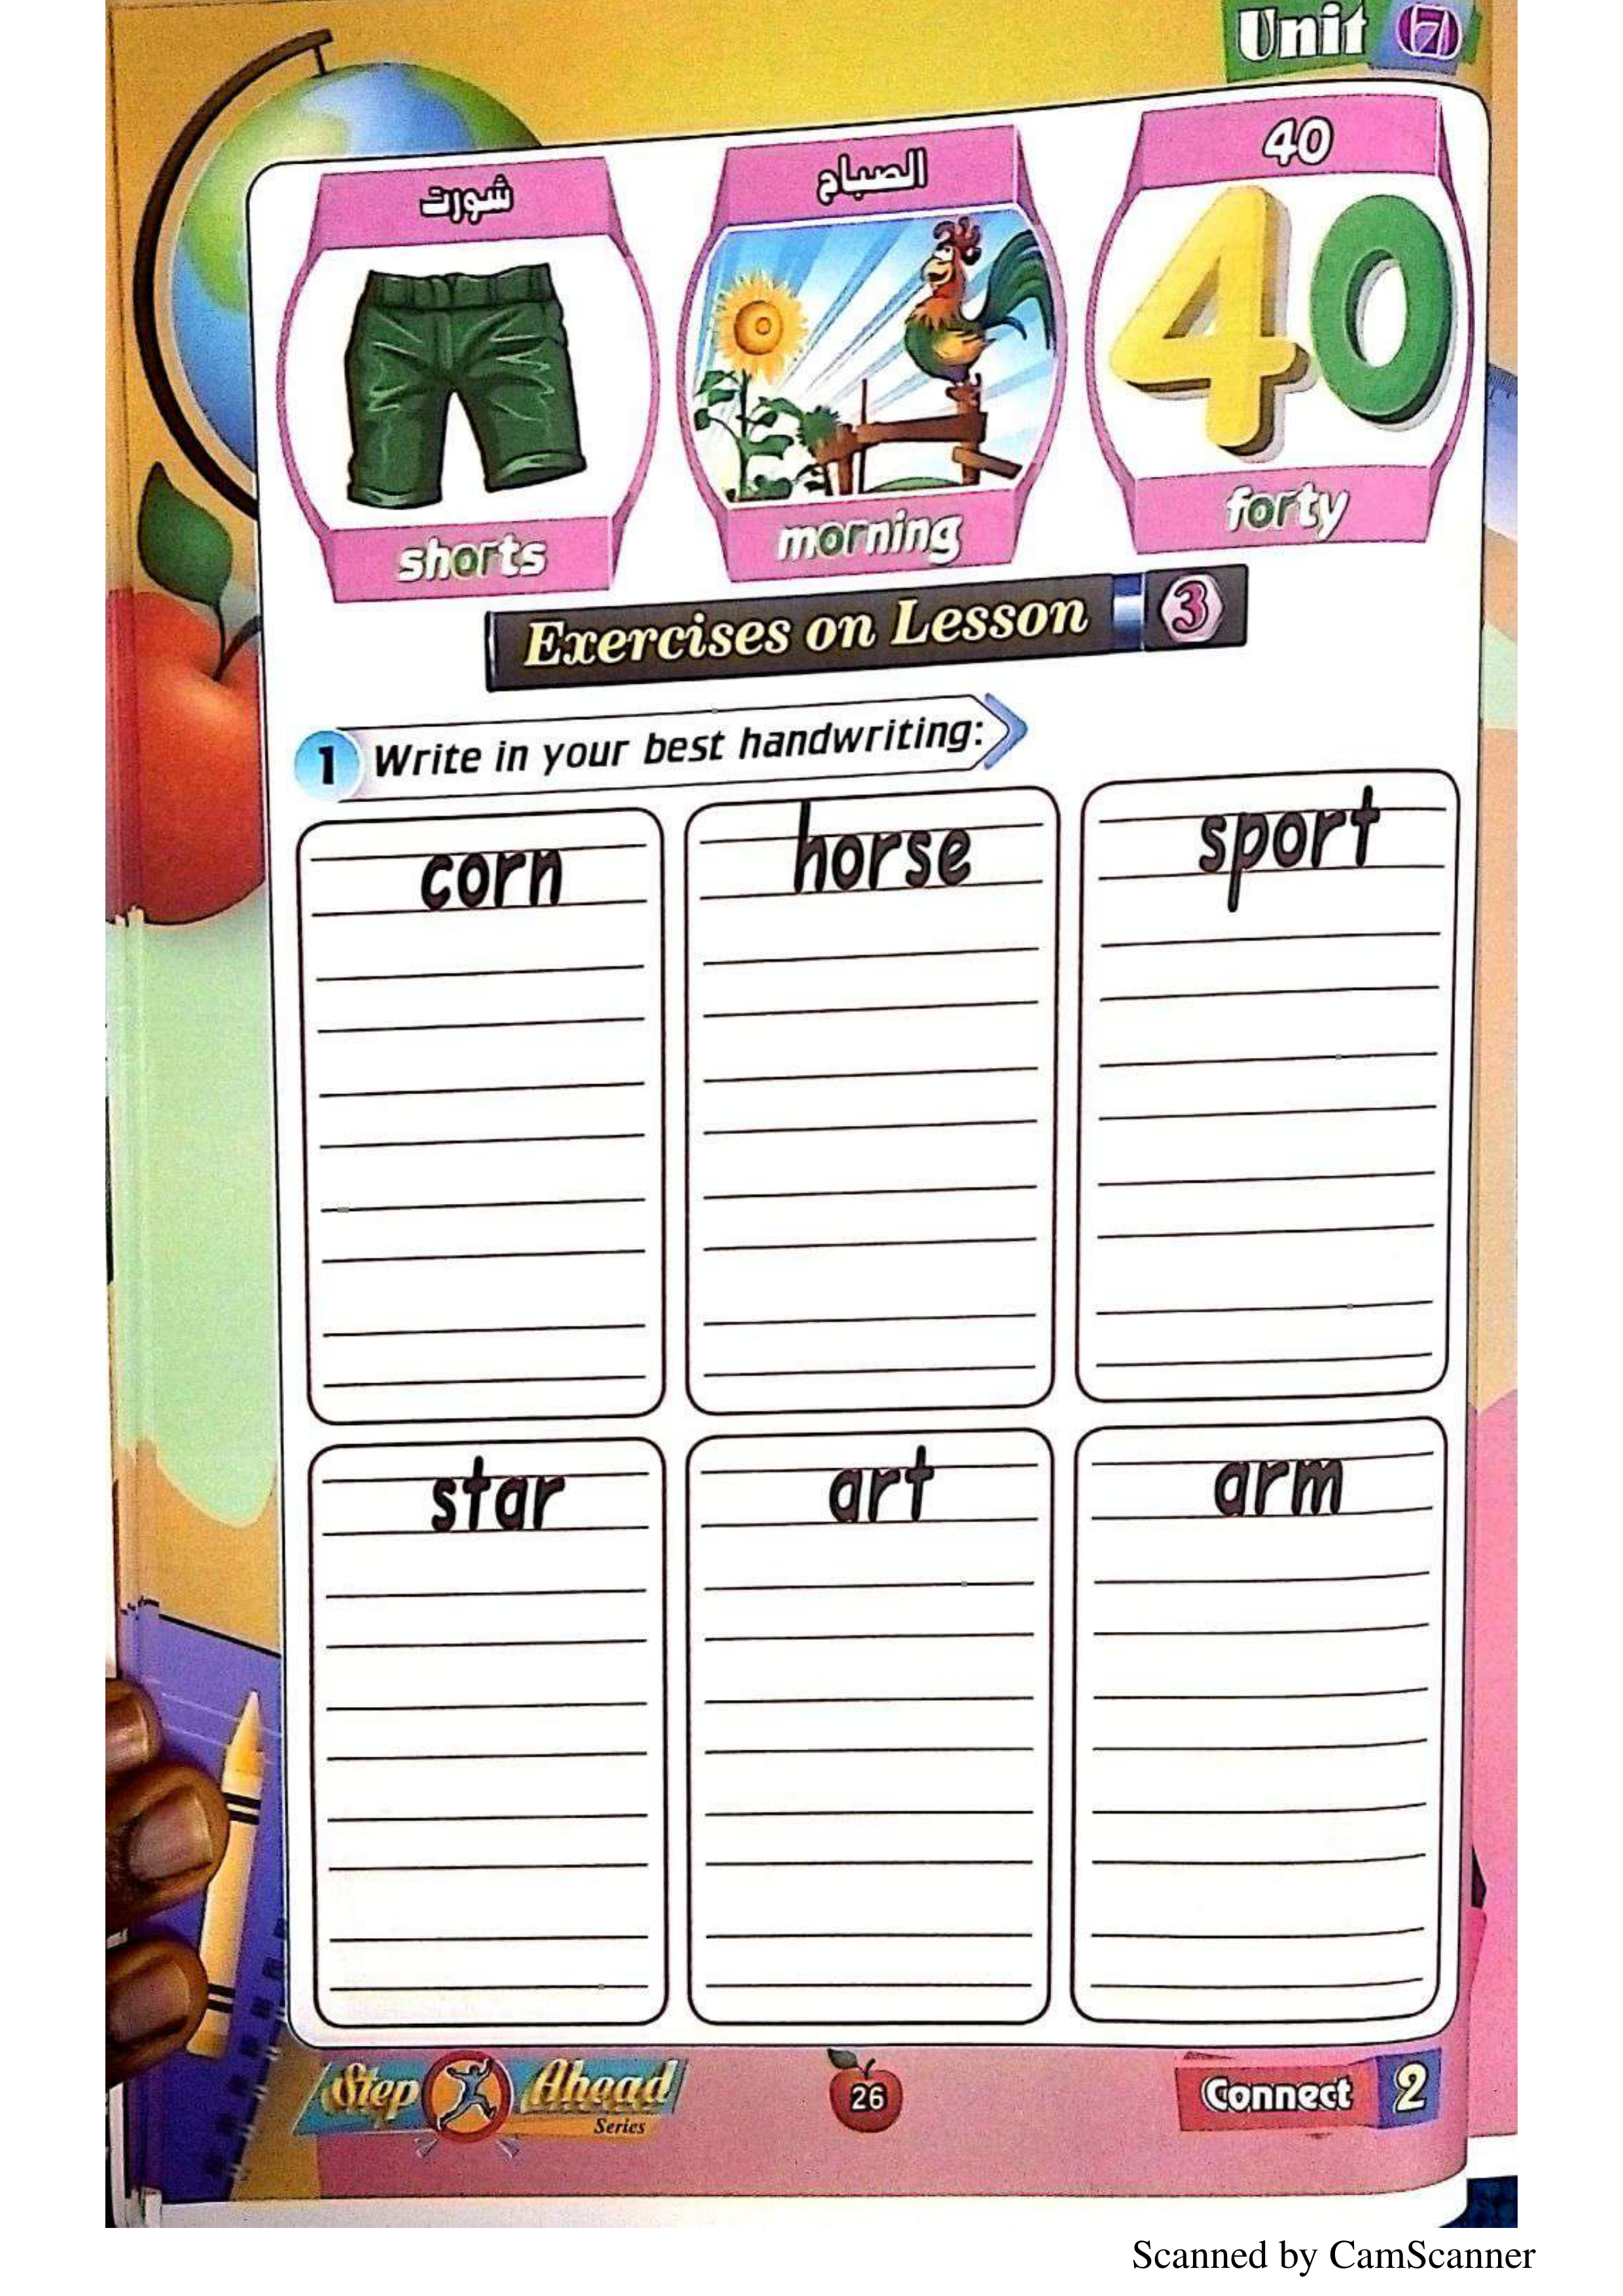 Unit 7
شورت
الصباح
40
40
shorts
morning
forty
Exercises on Lesson 3
1 Write in your best handwriting:
corn
horse
sport
star
art
arm
Step Ahead
Series
26
Connect 2
Scanned by CamScanner